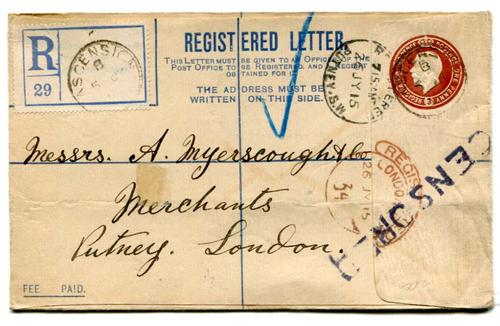 R
29
ASCENSION
REGISTERED LETTER.
THIS LETTER MUST BE GIVEN TO AN OFFICER OF THE
POST OFFICE TO BE REGISTERED, AND A RECEIPT
OBTAINED FOR IT.
THE ADDRESS MUST BE
WRITTEN ON THIS SIDE.
25 JY 15
Messrs. A. Myerscough & Co
Merchants
Putney. London.
LONDON
26 JY 15
34
CENSOR
FEE PAID.